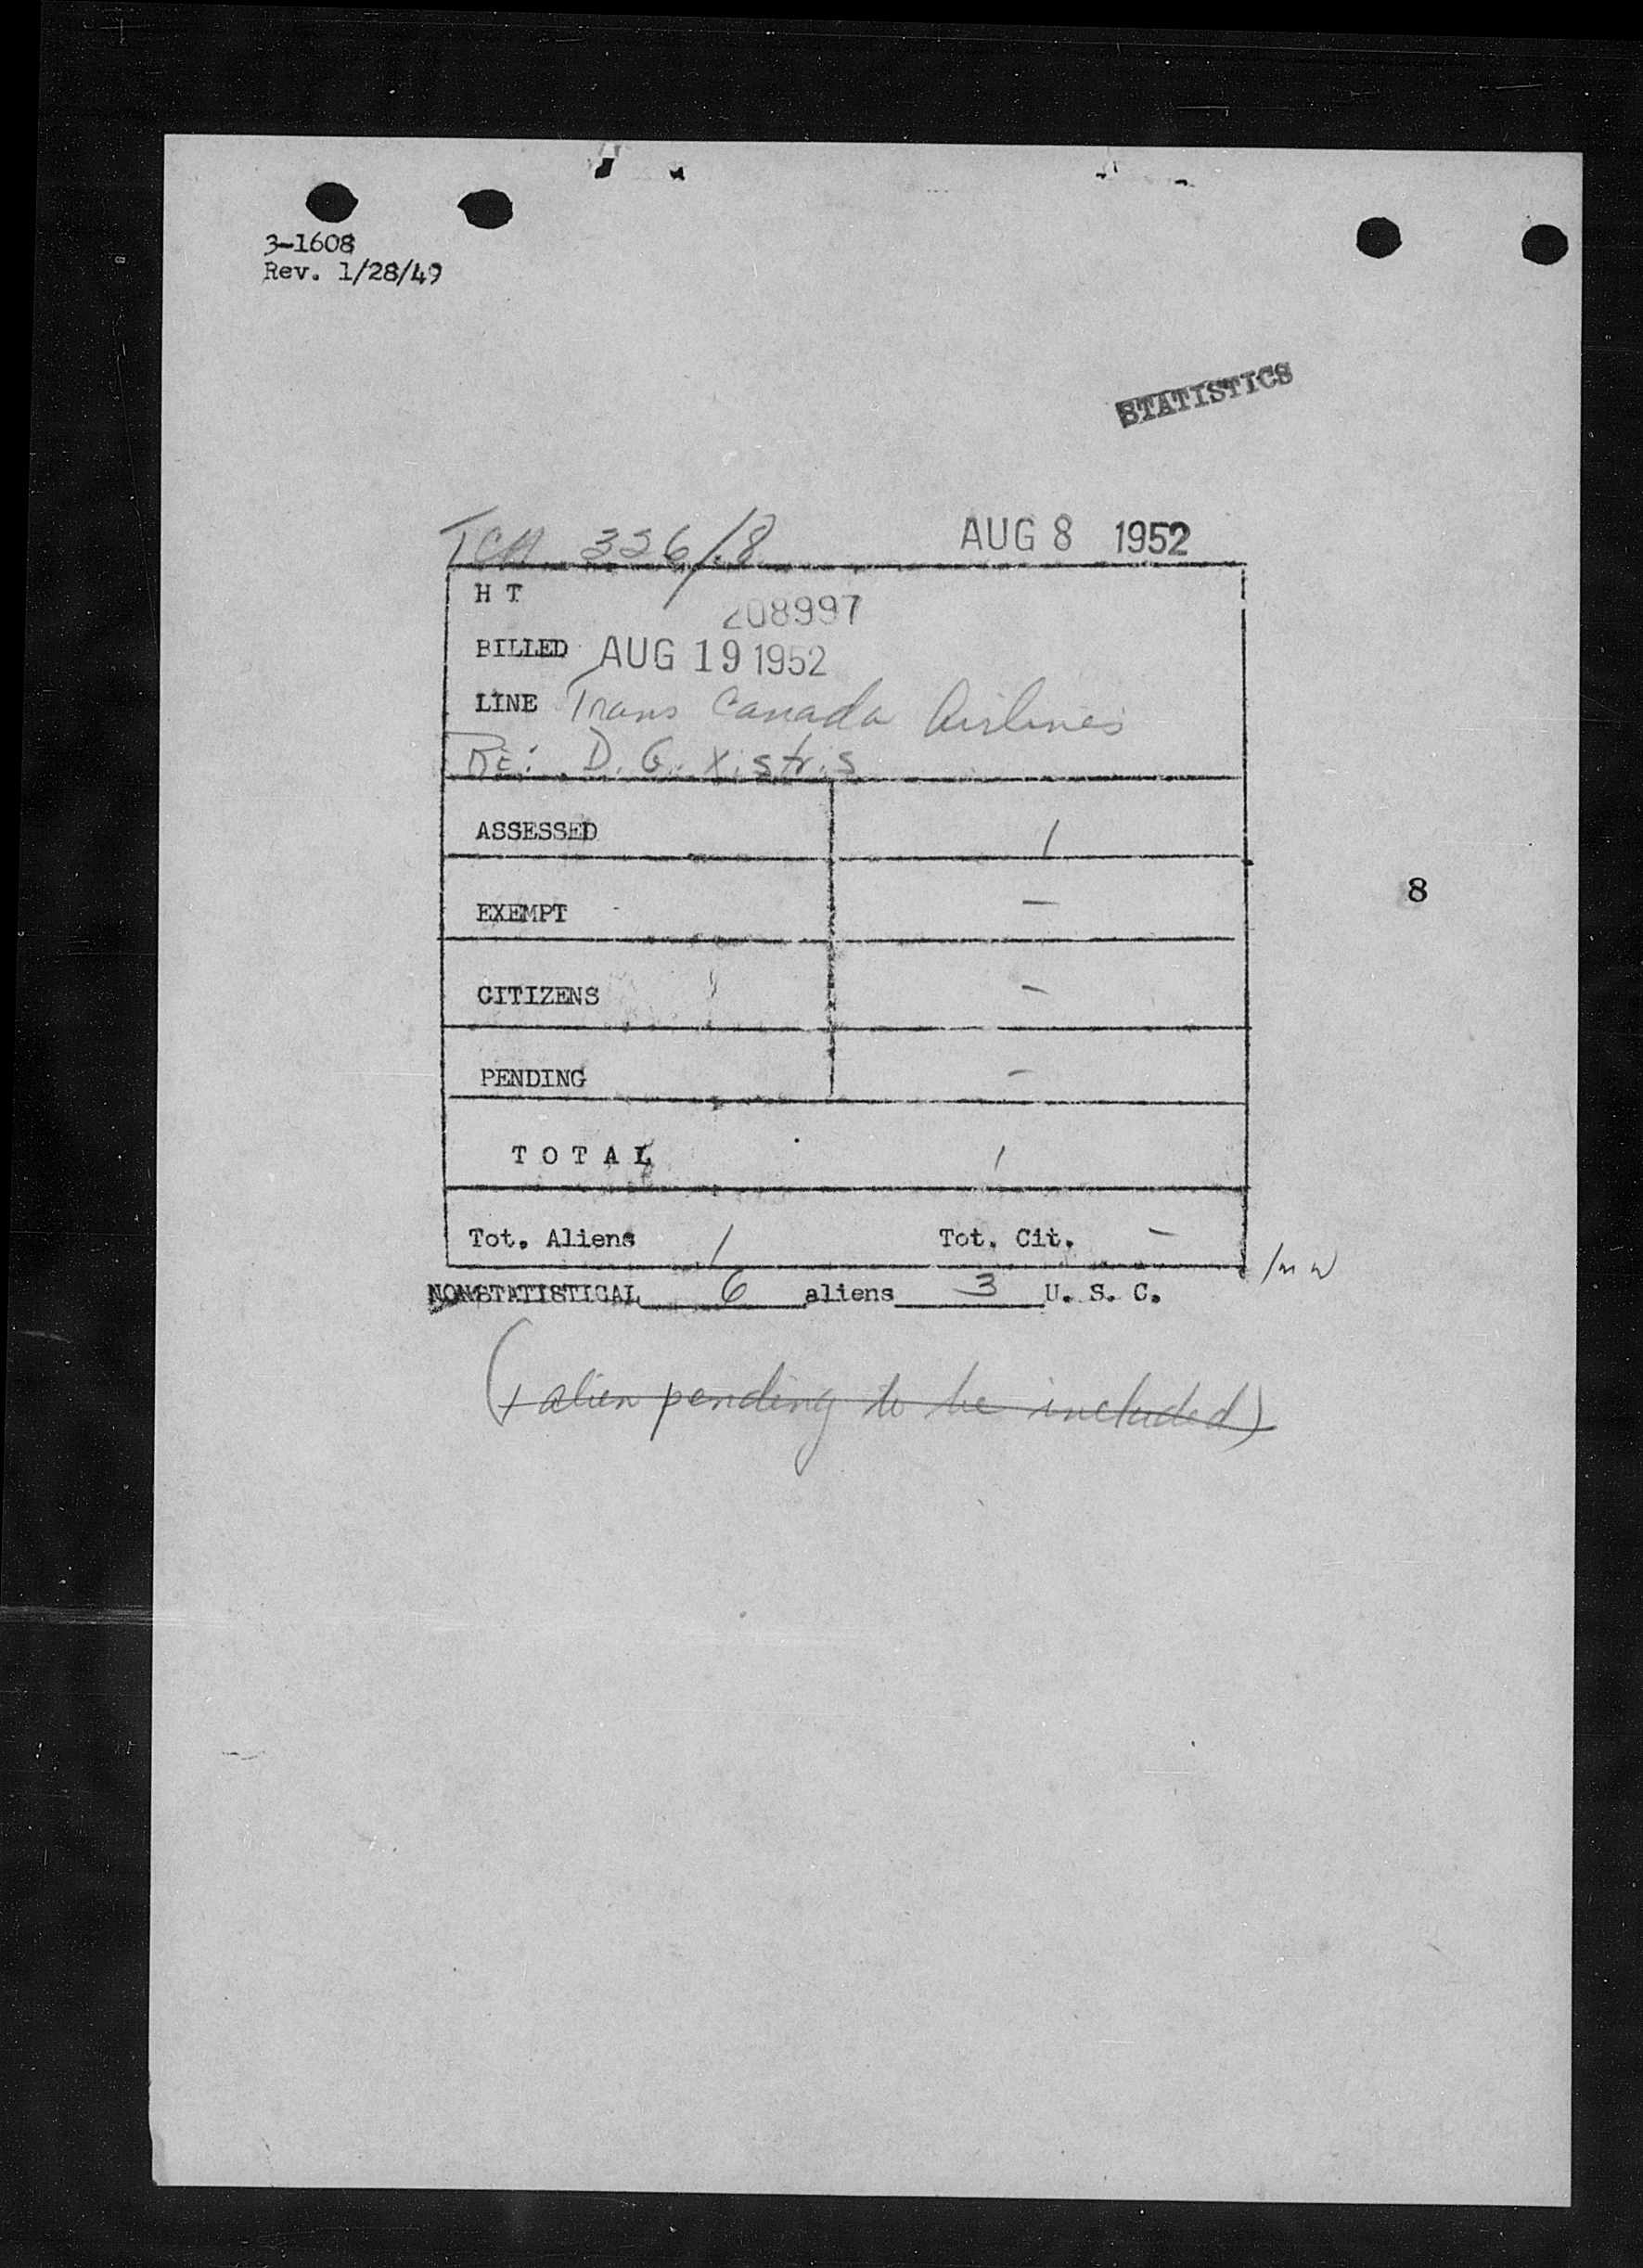 3-1608
Rev. 1/28/49
STATISTICS
TCA 336/8 AUG 8 1952
H T
208997
BILLED AUG 19 1952
LINE Trans Canada Airlines
RE: D. G. Xistris
ASSESSED 1
EXEMPT —
8
CITIZENS —
PENDING —
TOTAL 1
Tot. Aliens 1 Tot. Cit. —
NONSTATISTICAL 6 aliens 3 U. S. C.
(1 alien pending to be included)